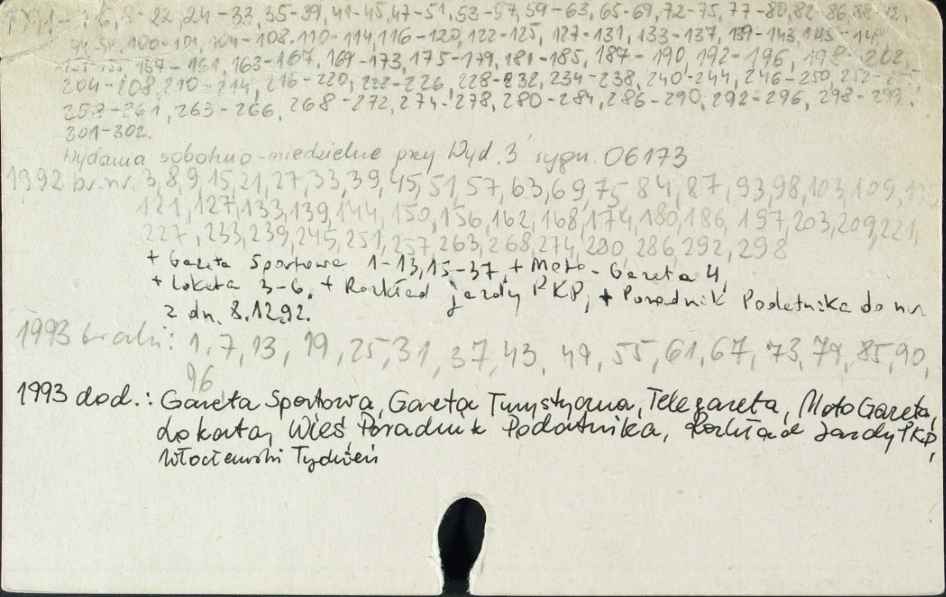 1991 - 6, 8-22, 24-33, 35-39, 41-45, 47-51, 53-57, 59-63, 65-69, 72-75, 77-80, 82
100-101, 104-108, 110-114, 116-120, 122-125, 127-131, 133-137, 139-143, 145-
157-161, 163-167, 169-173, 175-179, 181-185, 187-190, 192-196, 198-202,
204-208, 210-214, 216-220, 222-226, 228-232, 234-238, 240-244, 246-250, 252-
258-261, 263-266, 268-272, 274-278, 280-284, 286-290, 292-296, 298-299.
301-302.
Wydania sobotnio-niedzielne przy Wyd. 3 sygn. 06173
1992 br. nr. 3, 8, 9, 15, 21, 27, 33, 39, 45, 51, 57, 63, 69, 75, 84, 87, 93, 98, 103, 109,
121, 127, 133, 139, 144, 150, 156, 162, 168, 174, 180, 186, 197, 203, 209, 221,
227, 233, 239, 245, 251, 257, 263, 268, 274, 280, 286, 292, 298
+ Gazeta Sportowa 1-13, 15-37, + Moto-Gazeta 4,
+ Lokata 3-6, + Rozkład jazdy PKP, + Poradnik Podatnika do nr
z dn. 8.12.92.
1993 braki: 1, 7, 13, 19, 25, 31, 37, 43, 49, 55, 61, 67, 73, 79, 85, 90,
96
1993 dod.: Gazeta Sportowa, Gazeta Turystyczna, Telegazeta, Moto Gazeta,
Lokata, Wieś, Poradnik Podatnika, Rozkład Jazdy PKP,
Włocławski Tydzień